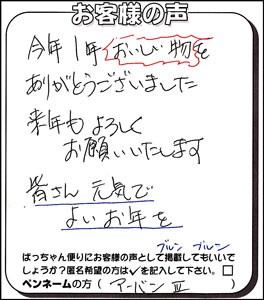 お客様の声
今年1年おいしい物を
ありがとうございました
来年もよろしく
お願いいたします
皆さん元気で
よいお年を
ばっちゃん便りにお客様の声として掲載してもいいで
しょうか?匿名希望の方は✓を記入して下さい。□
ブルン ブルン
ペンネームの方(アーバンⅢ)